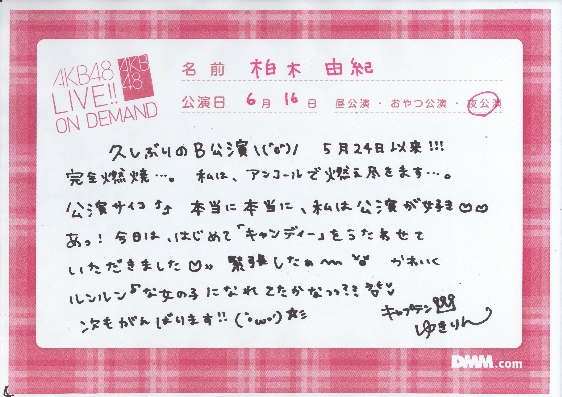 AKB48
LIVE!!
ON DEMAND
AKB
48
名前 柏木 由紀
公演日 6月 16日 昼公演・おやつ公演・夜公演
久しぶりのB公演\(^o^)/ 5月24日以来!!!
完全燃焼…。私は、アンコールで燃え尽きます…。
公演サイコー♪♪ 本当に本当に、私は公演が好き♡♡
あっ！今日は、はじめて「キャンディー」をうたわせて
いただきました♡〃 緊張したぁ〜 かわいく
ルンルン♪な女の子になれてたかなっっ??
次もがんばります!! (・ω・)☆ミ
キャプテン
ゆきりん
DMM.com